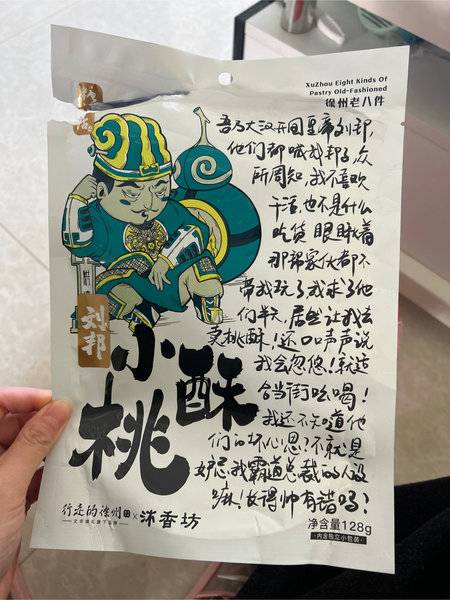 XuZhou Eight Kinds Of
Pastry Old-Fashioned
徐州老八件
吾乃大汉开国皇帝刘邦，
他们都喊我邦子，众
所周知，我不喜欢
干活，也不是什么
吃货 眼瞅着
那帮家伙都不
带我玩了，我求了他
们半天，居然让我去
卖桃酥！还口口声声说
我会忽悠！就适
合当街吆喝！
我还不知道他
们的坏心思？不就是
妒忌我霸道总裁的人设
嘛！长得帅有错吗！
刘邦
小桃酥
行走的徐州
×
沐香坊
净含量128g
·内含独立小包装·